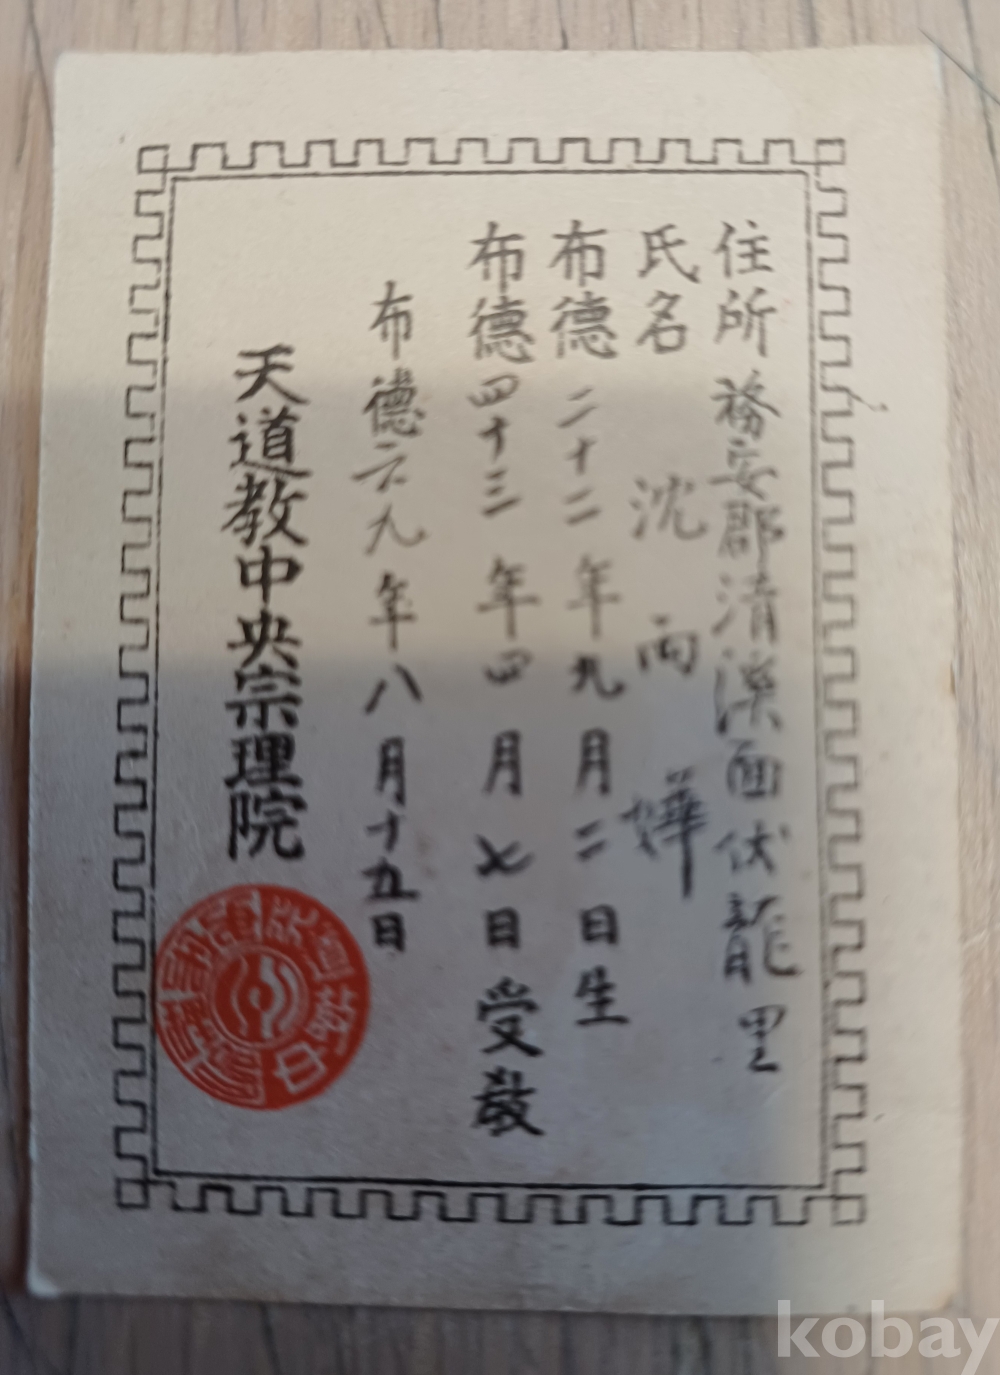 住所 務安郡清溪面伏龍里
氏名 沈雨嬅
布德二十二年九月二日生
布德四十三年四月七日受敎
布德六九年八月十五日
天道教中央宗理院
kobay